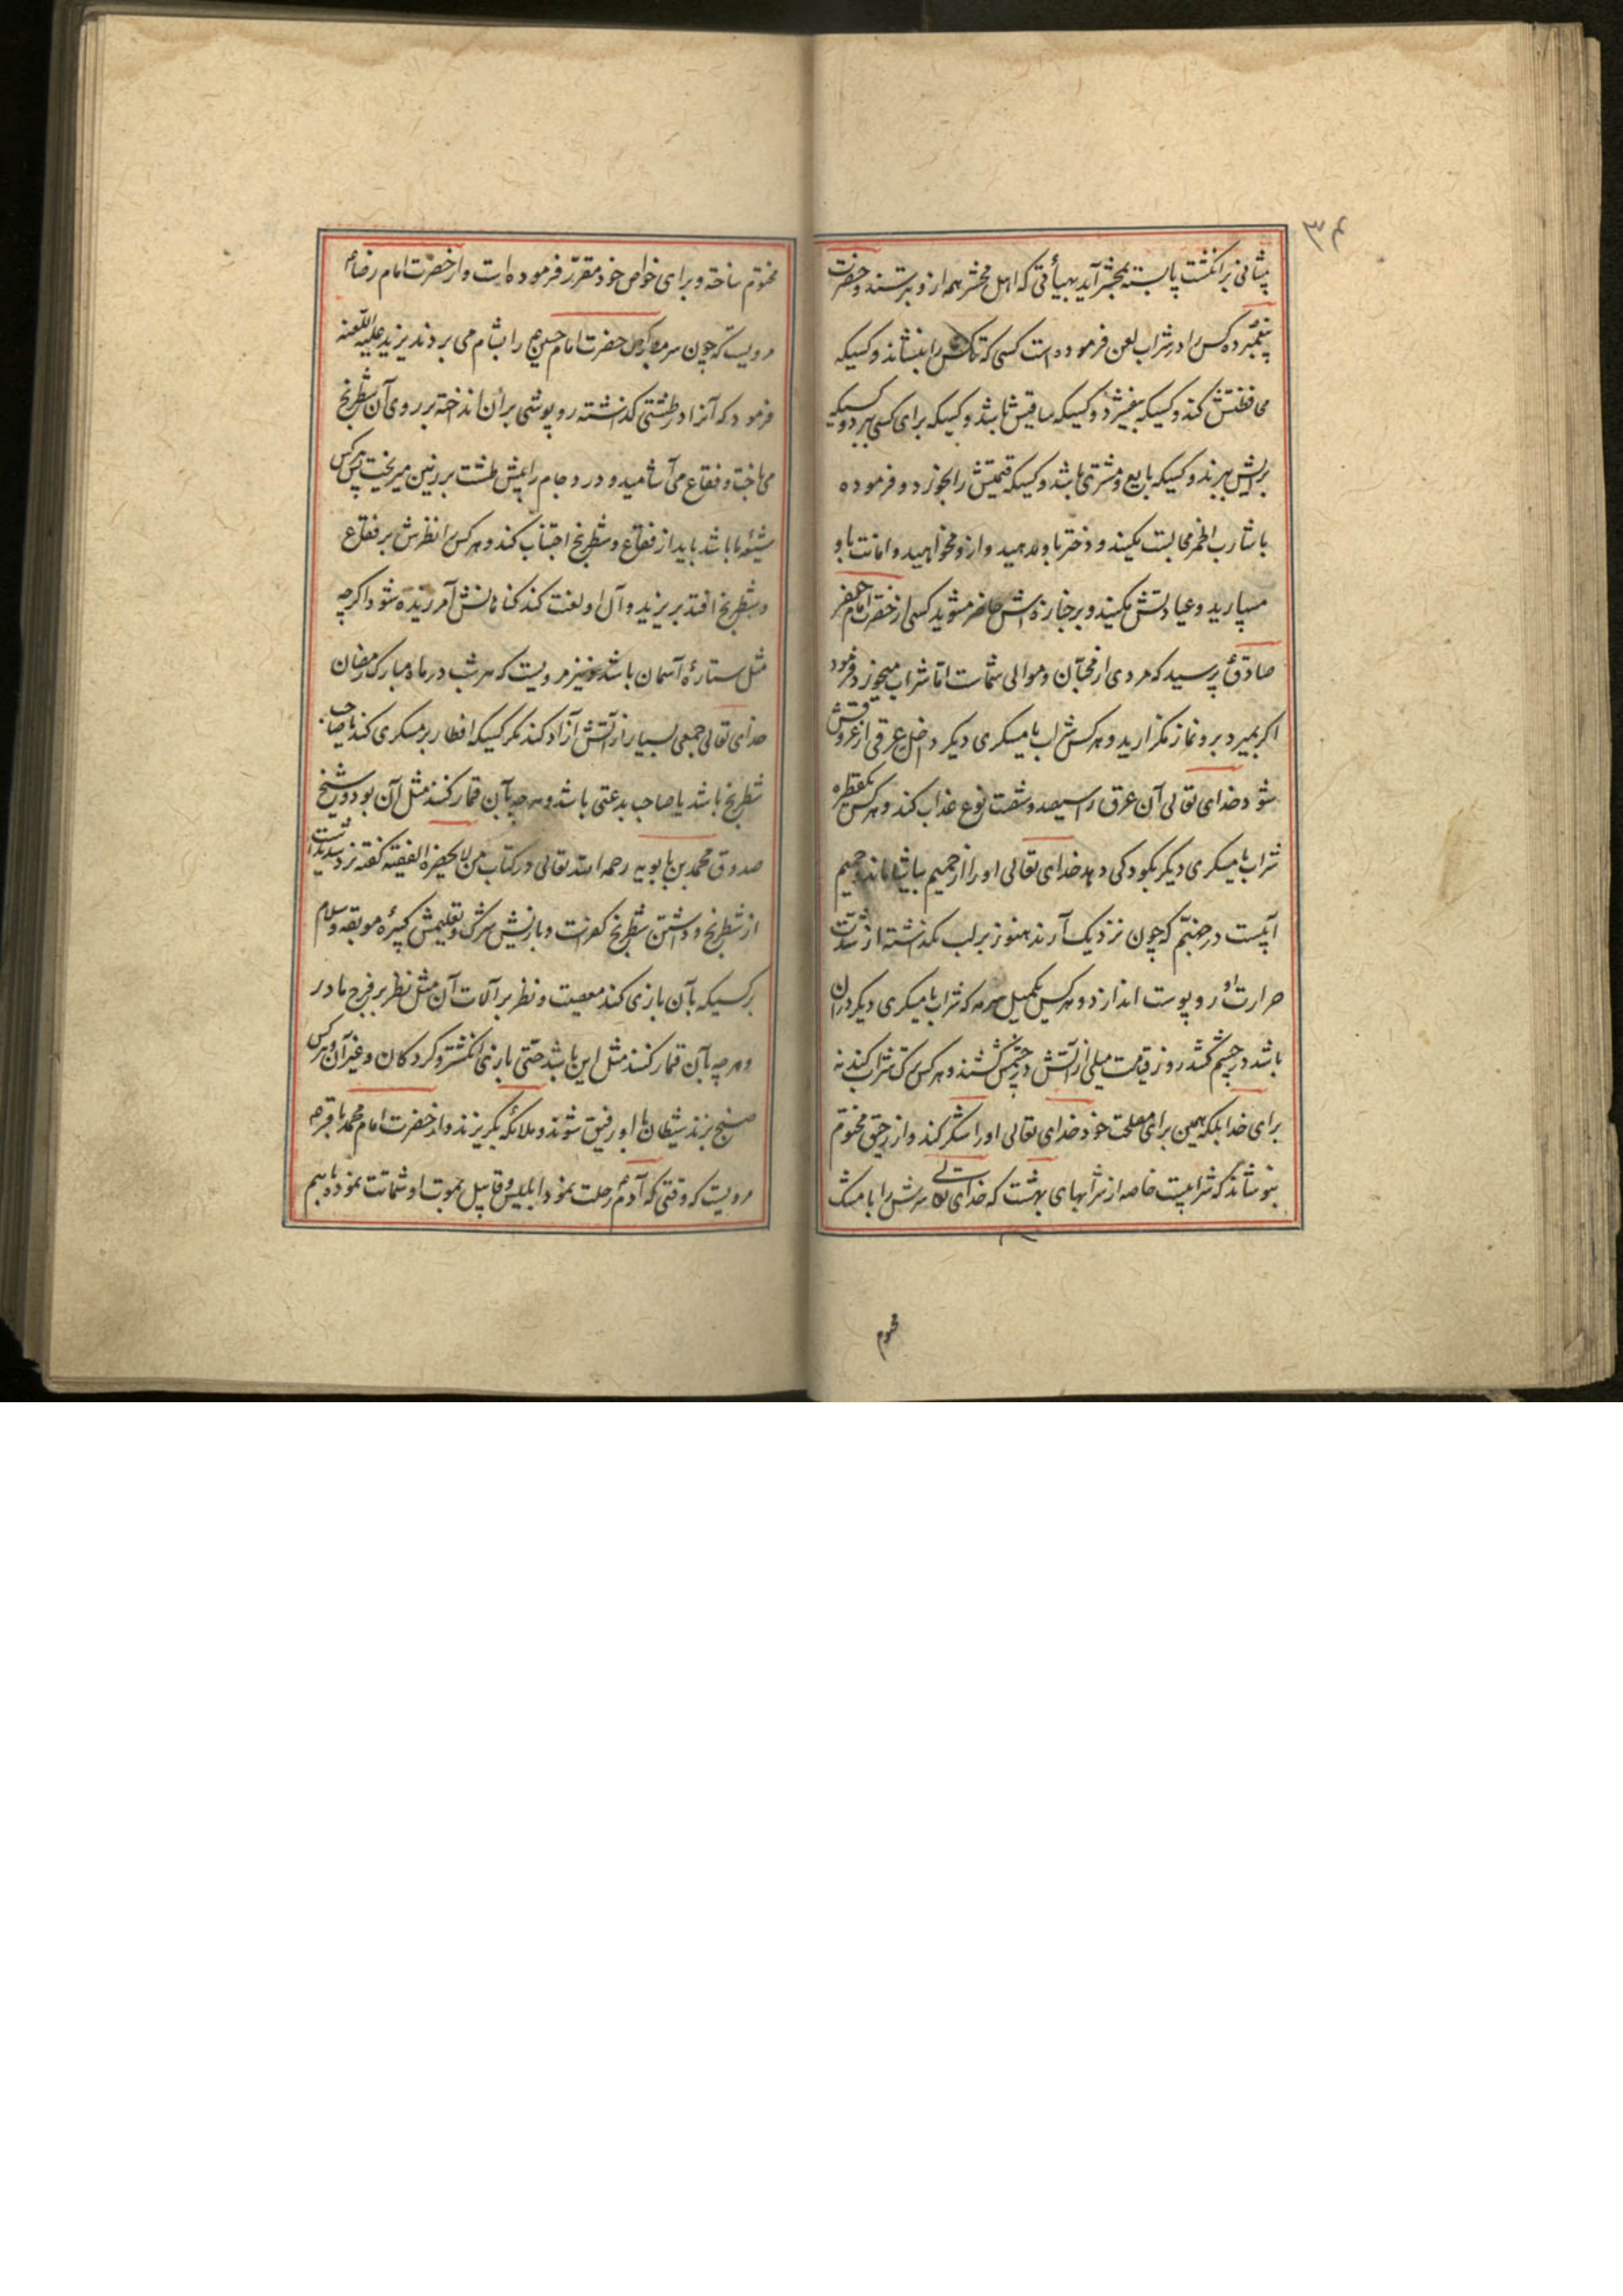 ۳۴
پیشانی بر انکشت پا بسته بمحشر آید بهیأتی که اهل محشر همه ازو بترسند و حضرت
پیغمبر ده کس را در شراب لعن فرموده است کسی که تاکش را بنشاند و کسیکه
محافظتش کند و کسیکه بیفشرد و کسیکه ساقیش باشد و کسیکه برای کسی ببرد و کسیکه
برایش ببرند و کسیکه بایع و مشتری باشد و کسیکه قیمتش را بخورد و فرموده
با شارب الخمر مجالست مکنید و دختر باو مدهید و ازو مخواهید و امانت باو
مسپارید و عیادتش مکنید و بر جنازه اش حاضر مشوید کسی از حضرت امام جعفر
صادق پرسید که مردی از محبّان و موالی شماست امّا شراب میخورد فرمود
اکر بمیرد برو نماز مکزارید و هر کس شراب یا مسکری دیکر داخل عرقی از عروقش
شود خدای تعالی آن عرق را سیصد و شصت نوع عذاب کند و هر کس یکقطره
شراب یا مسکری دیکر بکودکی دهد خدای تعالی او را از حمیم بیاشاماند و حمیم
آبیست در جهنّم که چون نزدیک آرند هنوز بر لب نکذشته از شدّت
حرارت او رو پوست اندازد و هر کس یکمیل سرمه که شراب یا مسکری دیکر در آن
باشد در چشم کشد روز قیامت میلی از آتش در چشمش کشند و هر کس ترک شراب کند نه
برای خدا بلکه همین برای مصلحت خود خدای تعالی او را شکر کند و از رحیق مختوم
بنوشاند که شرابیست خاصه از شرابهای بهشت که خدای تعالی سرش را با مشک
مختوم
مختوم ساخته و برای خواص خود مقرّر فرموده است و از حضرت امام رضا م
مرویست که چون سر مبارک حضرت امام حسین را بشام می بردند یزید علیه اللّعنه
فرمود که آنرا در طشتی کذاشته روپوشی بر آن انداخته بر روی آن شطرنج
می باخت و فقاع می آشامید و درد جام را پیش طشت بر زمین میریخت پس هر کس
شیعه ما باشد باید از فقاع و شطرنج اجتناب کند و هر کس را نظرش بر فقاع
و شطرنج افتد بر یزید و آل او لعنت کند کناهانش آمرزیده شود اکر چه
مثل ستارۀ آسمان باشد و نیز مرویست که هر شب در ماه مبارک رمضان
خدای تعالی جمعی بسیار از آتش آزاد کند مکر کسیکه افطار بر مسکری کند یا صاحب
شطرنج باشد یا صاحب بدعتی باشد و هر چه بآن قمار کنند مثل آن بود و شیخ
صدوق محمد بن بابویه رحمه الله تعالی در کتاب من لا یحضره الفقیه کفته
از شطرنج و داشتن شطرنج کفرست و بازیش شرک و تعلیمش کبیرۀ موبقه و سلام
بر کسیکه بآن بازی کند معصیت و نظر بر آلات آن مثل نظر بر فرج مادر
و هر چه بآن قمار کنند مثل این باشد حتّی بازی انکشتر و کردکان و غیر آن و هر کس
صنج بزند شیطان با او رفیق شوند و ملائکه بکریزند و از حضرت امام محمد باقر م
مرویست که وقتی که آدم رحلت نمود ابلیس و قابیل بموت او شماتت نموده با هم